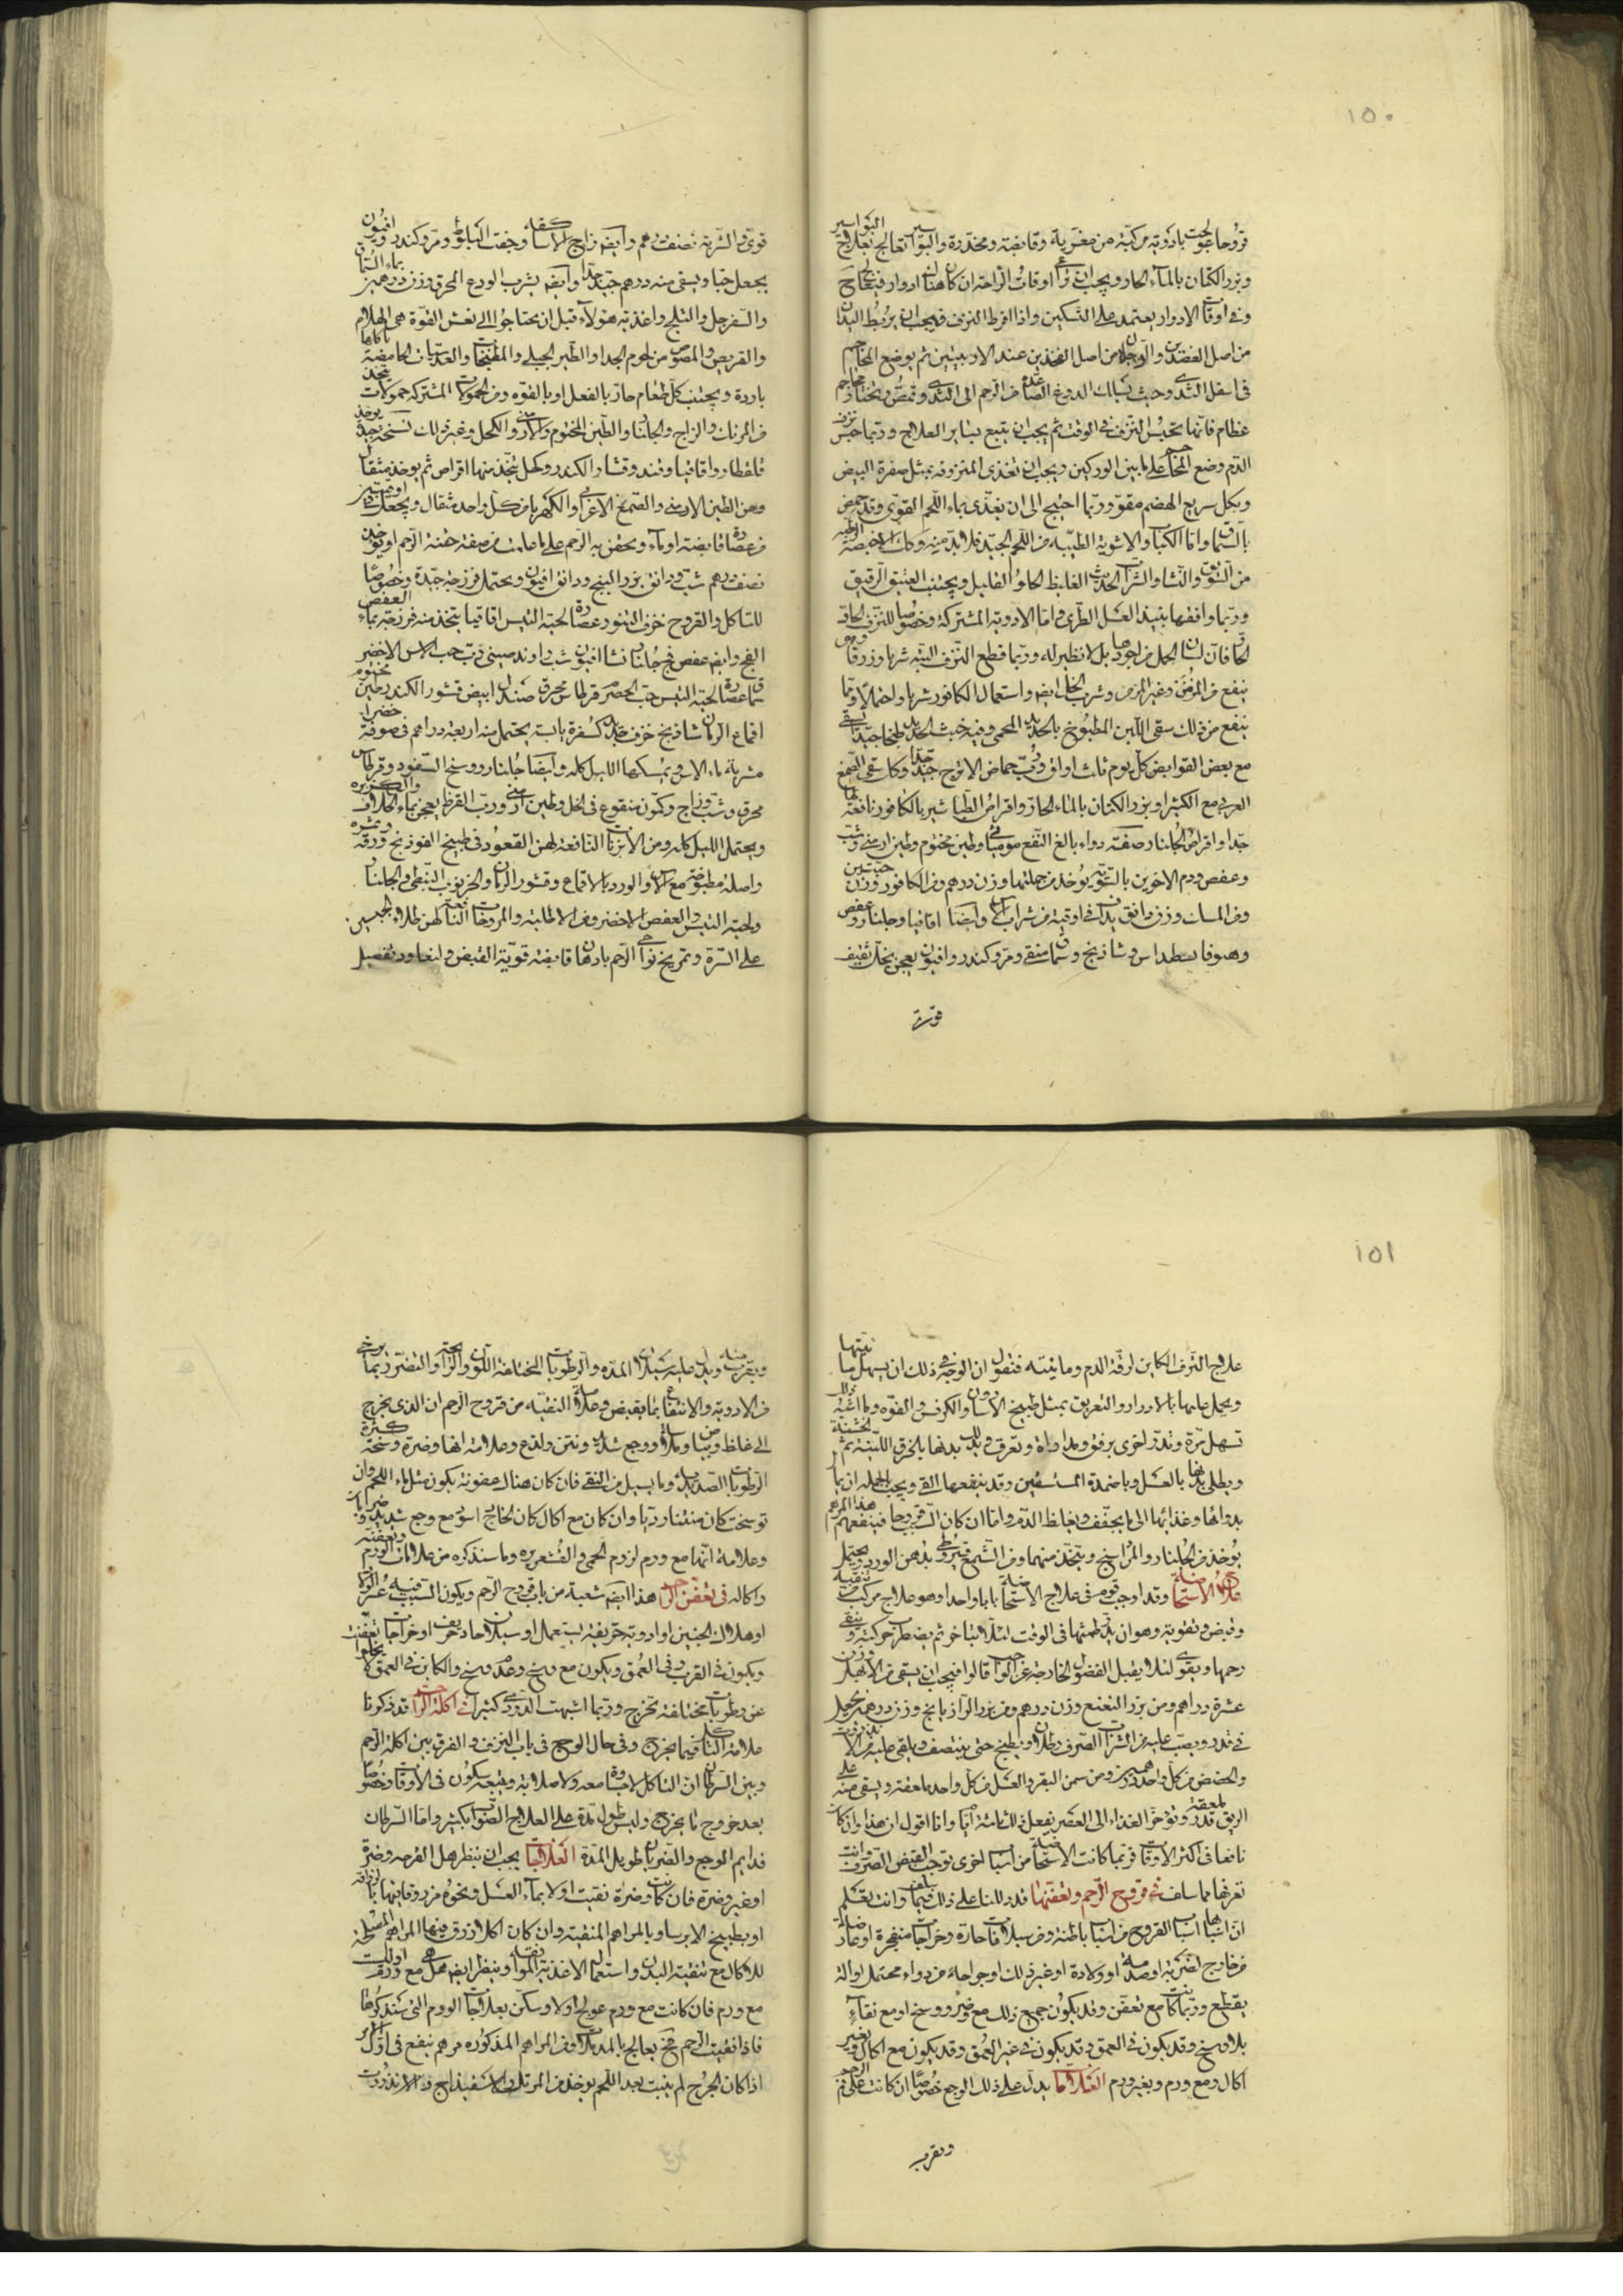 ١٥٠
قروحا عولجت بادوية مركبة من مغرية وقابضة ومخدرة والبواسير تعالج بعلاج البواسير
وبزر الكتان بالماء الحار ويجب ان اوقات الراحة ان كان هناك ادوار فيحتاج
وفى اوقات الادوار يعتمد على التسكين واذا افرط النزف فيجب ان يربط اليدان
من اصل العضدين والرجلان من اصل الفخذين عند الاربيتين ثم يوضع المحاجم
فى اسفل الثدى وحيث تسلك العروق الصاعدة من الرحم الى الثدى وتمص ويختار محاجم
عظام فانها تحبس النزف فى الوقت ثم يجب ان يتبع بسائر العلاج وربما حبس نزف
الدم وضع المحاجم على ما بين الوركين ويجب ان تغذى المنزوفة بمثل صفرة البيض
وبكل سريع الهضم مقوّ وربما احتيج الى ان يغذى بماء اللحم القوى وقد حمض
بالسماق واما الكباب والاشوية الطيبة من اللحم الجيد فلا بد منه وكذلك الاخبصة الرطبة
من السويق والنشا والشراب الحديث الغليظ الحلو القليل ويجتنب العتيق الرقيق
وربما وافقها نبيذ العسل الطرى واما الادوية المشتركة وخصوصا للنزف الحادّ
الحار فان لسان الحمل من اجودها بل لا نظير له وربما قطع النزف البتة شربا وزرقا وهو
ينفع من المزمن وغير المزمن وشرب الخل ايضا واستعمال الكافور شربا واحتمالا ومما
ينفع من ذلك سقى اللبن المطبوخ بالحديد المحمى وفيه خبث الحديد طبخا جيدا يسقى
مع بعض القوابض كل يوم ثلث اواق ورب حماض الاترج جيد جدا وكذلك سقى الصمغ
العربى مع الكثيرا وبزر الكتان بالماء الحار واقراص الطباشير بالكافور نافعة لها
جدا واقراص الجلنار صفة دواء بالغ النفع موميائى وطين مختوم وطين ارمنى وشب
وعفص ودم الاخوين بالسوية يؤخذ من جملتها وزن درهم ومن الكافور وزن حبتين
ومن المسك وزن دانق يداف فى اوقية من شراب الاس وايضا اقاقيا وجلنار وعفص
وهيوفاقسطيداس وشاذنج وسماق منقى ومر وكندر وافيون يعجن بخل ثقيف
قوى والشربة نصف درهم وايضا زاج الاساكفة وجفت البلوط ومر وكندر وافيون
يجعل حبا ويسقى منه درهم جيد جدا وايضا يشرب الودع المحرق وزن درهمين بماء السماق
والسفرجل والثلج واغذية هؤلاء قبل ان يحتاجوا الى نعش القوة هى الهلام
والقريص والمصوص من لحوم الجداء والطير الجبلى والمطبخات والعدسيات الحامضة باكلها
باردة ويجتنب كل طعام حار بالفعل او بالقوة ومن الحمولات المشتركة حمولات تتخذ
من المرتك والزاج والجلنار والطين المختوم والارمنى والكحل وغير ذلك نسخة جيدة يوخذ
قلقطار واقاقيا وقشار الكندر وكحل يتخذ منها اقراص ثم يوخذ مثقال
ومن الطين الارمنى والصمغ الاعرابى والكهربا من كل واحد مثقال ويجعل فى اوقيتين
من عصارة قابضة او ماء ويحقن به الرحم على ما علمت من صفة حقنة الرحم او يوخذ
نصف درهم شب ودانق بزر البنج ودانق افيون ويحتمل فرزجة جيدة وخصوصا
للتاكل والقروح خزف التنور وعصارة لحية التيس اقاقيا يتخذ منه فرزجة بماء العفص
الفج وايضا عفص فج جلنار نشا افيون شب راوند صينى رب حب الاس الاخضر
سماق عصارة لحية التيس حب الحصرم قرطاس محرق صندل ابيض قشور الكندر طين مختوم
اقماع الرمان شاذنج خزف جديد كسفرة يابسة يحتمل منه اربعة دراهم فى صوفة خضرا
مشربة بماء الاس ويمسكها الليل كله وايضا جلنار ووسخ السفود وقرطاس
محرق وشب وزاج وكمون منقوع فى الخل وطين ارمنى ورب القرظ يعجن بماء الخلاف والكزبرة
ويحتمل الليل كله ومن الابزنات النافعة لهن القعود فى طبيخ الفوذنج ورقه وثمره
واصله مطبوخة مع الاس والورد بالاقماع وقشور الرمان والخرنوب النبطى والجلنار
ولحية التيس والعفص الاخضر ومن الاطلية والمروخات النافعة لهن طلاء الجبسين
على السرة وتمريخ نواحى الرحم بادهان قابضة قوية القبض ولنعاود تفصيل
قوى
١٥١
علاج النزف الكاين لرقة الدم ومائيته فنقول ان الوجه فى ذلك ان يسهل مائيتها
ويحمل عليها بالادرار والتعريق بمثل طبيخ الاسارون والكرفس والفوه وما اشبه ذلك
تسهل مرة وتدر اخرى برفق ومداراة وتعرق ويدلك بدنها بالخرق اللينة ثم الخشنة
ويطلى بدنها بالعسل وباضمدة المستسقين وقد ينفعها القى ويجب الجملة ان يمال
بدوائها وغذائها الى ما يجفف ويغلظ الدم واما ان كان السبب قروحا فينفعهم هذا المرهم
يؤخذ من الجلنار والمرداسنج ويتخذ منهما ومن الشمع قيروطى بدهن الورد ويحتمل
علاج الاستحاضة وقد اوجب قوم فى علاج الاستحاضة بابا واحدا وهو علاج مركب من تنقية
وقبض وتقوية وهو ان يدر طمثها فى الوقت لئلا يتاخر ثم يضطرب حركته وينقى
رحمها ويقوى لئلا يقبل الفضول الخارجة عن الواجب قالوا فيجب ان يسقى من الابهل وزن
عشرة دراهم ومن بزر النعنع وزن درهم ومن بزر الرازيانج وزن درهم يجعل
فى قدر ويصب عليه من الشراب الصرف رطلان ويطبخ حتى ينتصف ويلقى عليه من الانزروت
والحضض من كل واحد درهمين ومن سمن البقر والعسل من كل واحد ملعقة ويسقى منه على
الريق قدر ملعقة وتؤخر الغذاء الى العصر يفعل ذلك ثلثة ايام وانا اقول ان هذا وان كان
نافعا فى اكثر الاوقات فربما كانت الاستحاضة من اسباب اخرى توجب القبض الصرف وانت
تعرفها مما سلف فى قروح الرحم وتعفنها قد دللنا على ذلك فيما سلف وانت تعلم
ان اسبابها اسباب القروح من اسباب باطنة ومن سيلانات حادة وخراجات منفجرة او عارضة
من خارج لضربة او صدمة او ولادة او غير ذلك او جراحة من دواء محتمل او الة
يقطع وربما كانت مع تعفن وقد يكون جميع ذلك مع وضر ووسخ او مع نقاء
بلا وسخ وقد يكون فى العمق وقد يكون فى غير العمق وقد يكون مع اكال وبغير
اكال ومع ورم وبغير ورم العلامات يدل على ذلك الوجع خصوصا ان كانت على فم الرحم
وبقرب
وبقرب منه ويدل عليه سيلان المدة والرطوبات المختلفة اللون والرائحة والتضرر بما يرخى
من الادوية والانتفاع بما يقبض وعلامة النقية من قروح الرحم ان الذى يخرج
الى غلظ وبياض وملاسة ووجع شديد ونتن ولذع وعلامة انها وضرة وسخة كثرة
الرطوبات الصديدية وما يسيل من النقى فان كان هناك عفونة يكون مثل ماء اللحم وان
توسخت كان منتنا رديا وان كان مع اكال كان الخارج اسود مع وجع شديد وضربان
وعلامة انها مع ورم لزوم الحمى والقشعريرة وما سنذكره من علامات الورم وتعفنه
واكاله فى تعفن الرحم هذا ايضا شعبة من باب قروح الرحم ويكون السبب فيه عسر الولادة
او هلاك الجنين او ادوية حريفة يستعمل او سيلان حاد حريف او خراجات تعفنت
ويكون فى القرب وفى العمق ويكون مع وسخ وعدم وسخ والكاين فى العمق لا يخلو
عن رطوبات مختلفة تخرج وربما اشبهت الدردى كثيرا فى اكلة الرحم قد ذكرنا
علامة التاكل فيما يخرج وفى حال الوجع فى باب النزف والفرق بين اكلة الرحم
وبين السرطان ان التاكل لا جساوة معه ولا صلابة ويتبعه سكون فى الاوقات وخصوصا
بعد خروج ما يخرج وليس طول مدة على العلاج الصواب بكثير واما السرطان
فدايم الوجع والضربان طويل المدة العلاجات يجب ان ينظر هل القرحة وضرة
او غير وضرة فان كانت وضرة نقيت اولا بماء العسل ونحوه مزروقا فيها بالزراقة
او بطبيخ الايرسا وبالمراهم المنقية وان كان اكال زرق فيها المراهم المصلحة
للاكال مع تنقية البدن واستعمال الاغذية الموافقة وينظر ايضا هل هى مع ورم او ليست
مع ورم فان كانت مع ورم عولج اولا وسكن بعلاجات الورم التى سنذكرها
فاذا نقيت الرحم فح يعالج بالمدملات ومن المراهم المذكورة مرهم ينفع فى اول الامر
اذا كان الجرح لم ينبت بعد اللحم يوخذ من المرتك والاسفيداج والانزروت